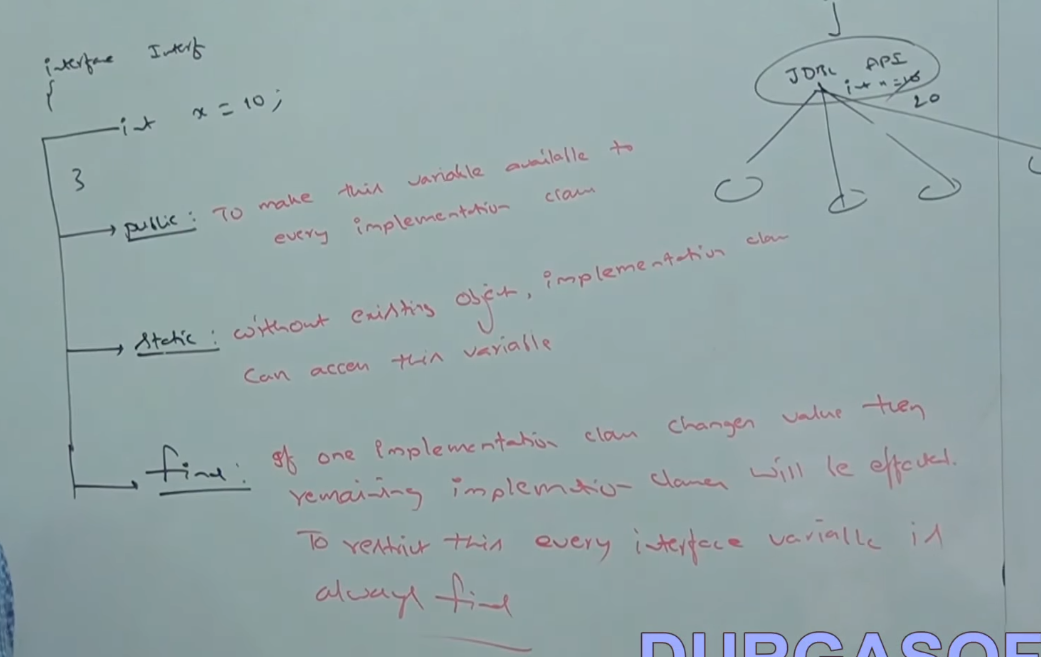 interface Interf
{
int x = 10;
}
public: To make this variable available to
every implementation class
static: without existing object, implementation class
can access this variable
final: If one implementation class changes value then
remaining implemention classes will be effected.
To restrict this every interface variable is
always final
JDBC API
int x = 10
20
DURGASOF